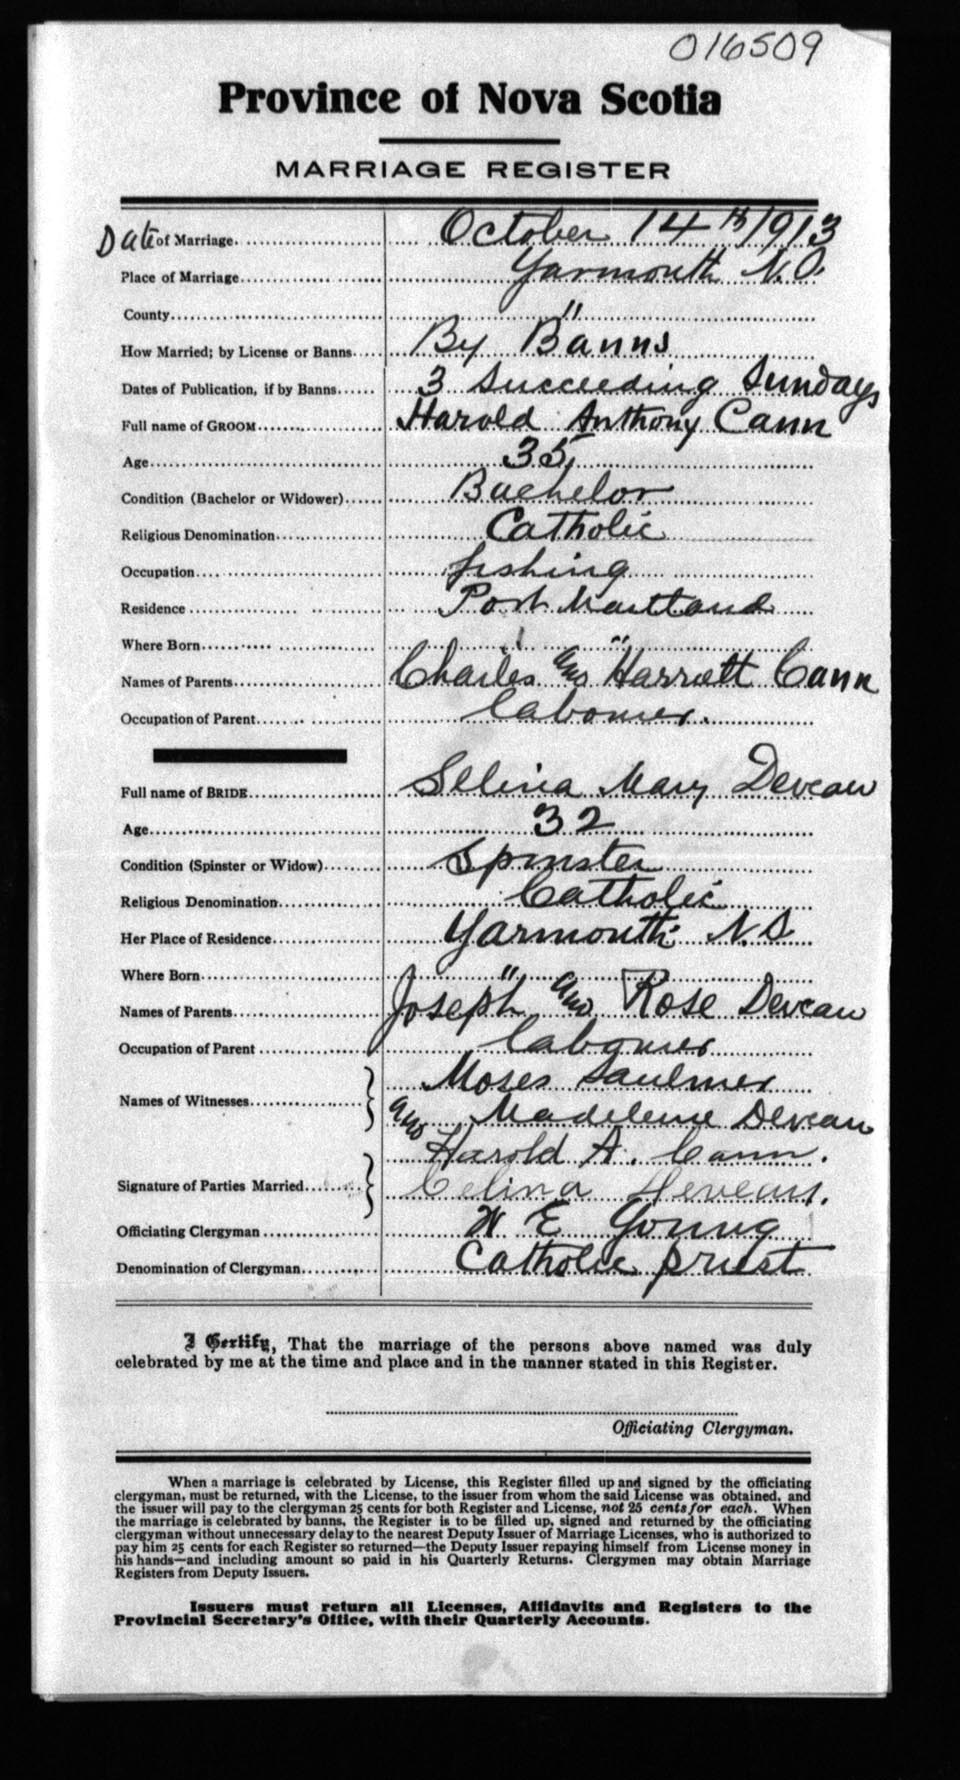 016509
Province of Nova Scotia
MARRIAGE REGISTER
Date of Marriage October 14th 1913
Place of Marriage Yarmouth N.S.
County "
How Married; by License or Banns By Banns
Dates of Publication, if by Banns 3 Succeeding Sundays
Full name of GROOM Harold Anthony Cann
Age 35
Condition (Bachelor or Widower) Bachelor
Religious Denomination Catholic
Occupation fishing
Residence Port Maitland
Where Born "
Names of Parents Charles and Harriett Cann
Occupation of Parent labourer.
Full name of BRIDE Selina Mary Deveau
Age 32
Condition (Spinster or Widow) Spinster
Religious Denomination Catholic
Her Place of Residence Yarmouth N.S
Where Born "
Names of Parents Joseph and Rose Deveau
Occupation of Parent labourer
Moses Saulnier
Names of Witnesses
and Madeleine Deveau
Harold A. Cann.
Signature of Parties Married Celina Deveau.
Officiating Clergyman W E Young
Denomination of Clergyman Catholic priest
I Certify, That the marriage of the persons above named was duly
celebrated by me at the time and place and in the manner stated in this Register.
Officiating Clergyman.
When a marriage is celebrated by License, this Register filled up and signed by the officiating
clergyman, must be returned, with the License, to the issuer from whom the said License was obtained, and
the issuer will pay to the clergyman 25 cents for both Register and License, not 25 cents for each. When
the marriage is celebrated by banns, the Register is to be filled up, signed and returned by the officiating
clergyman without unnecessary delay to the nearest Deputy Issuer of Marriage Licenses, who is authorized to
pay him 25 cents for each Register so returned—the Deputy Issuer repaying himself from License money in
his hands—and including amount so paid in his Quarterly Returns. Clergymen may obtain Marriage
Registers from Deputy Issuers.
Issuers must return all Licenses, Affidavits and Registers to the
Provincial Secretary's Office, with their Quarterly Accounts.